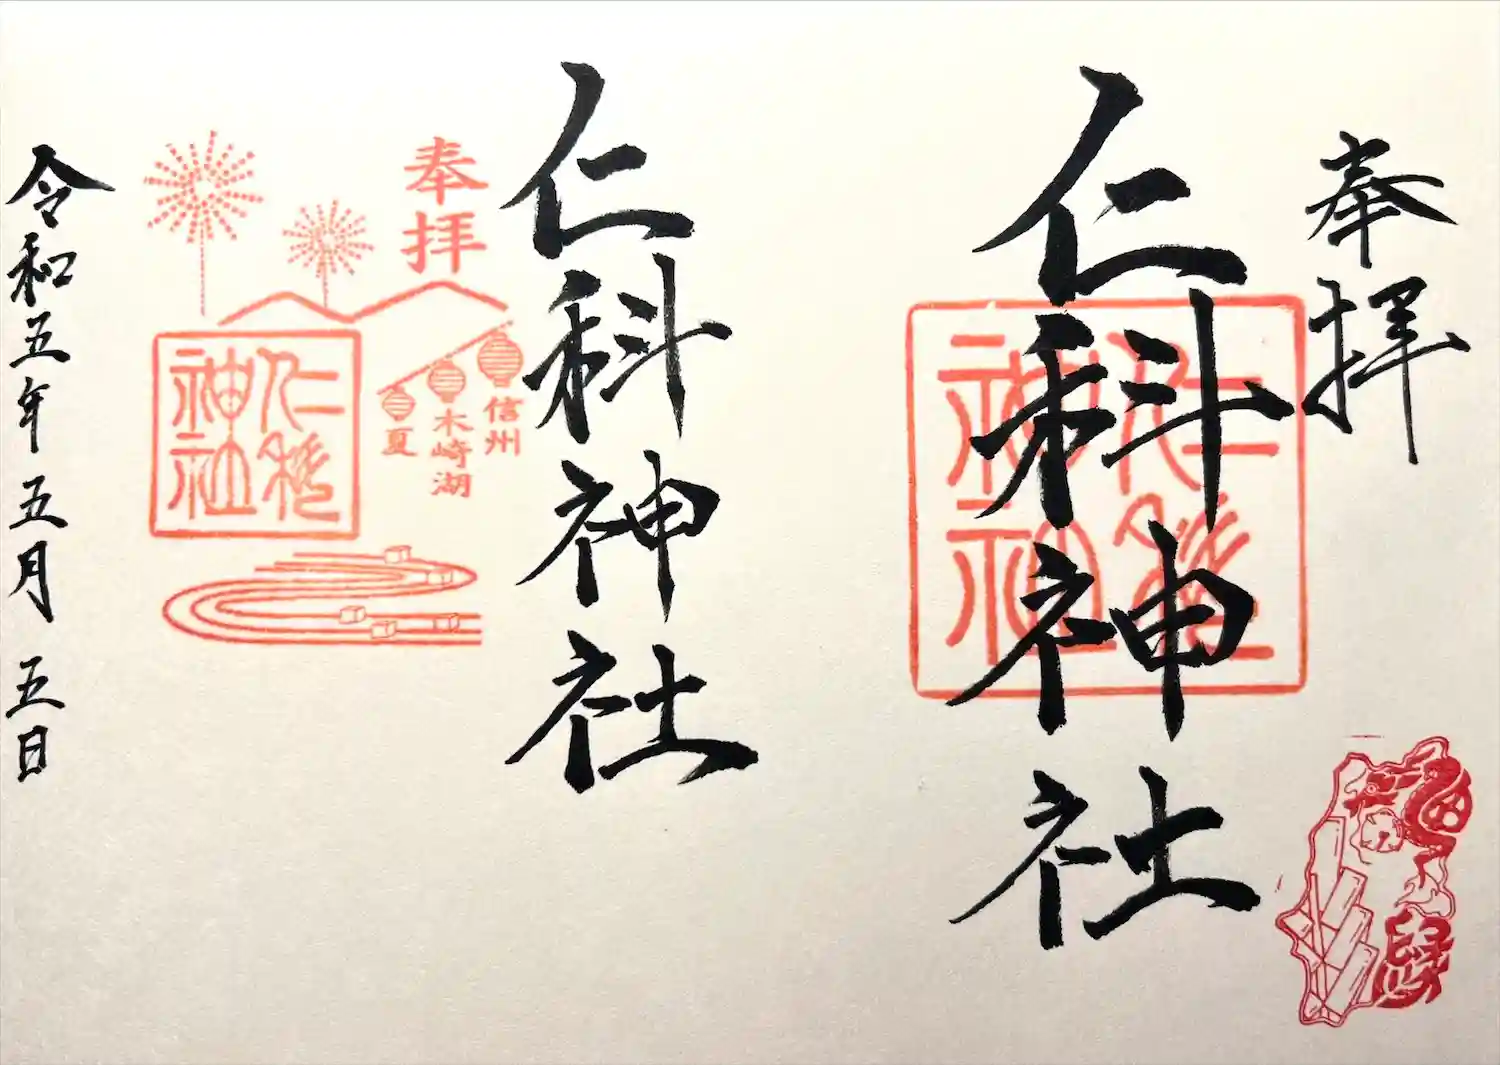 奉拝
仁科神社
仁科神社
仁科神社
奉拝
信州
木崎湖
夏
仁科神社
令和五年五月五日